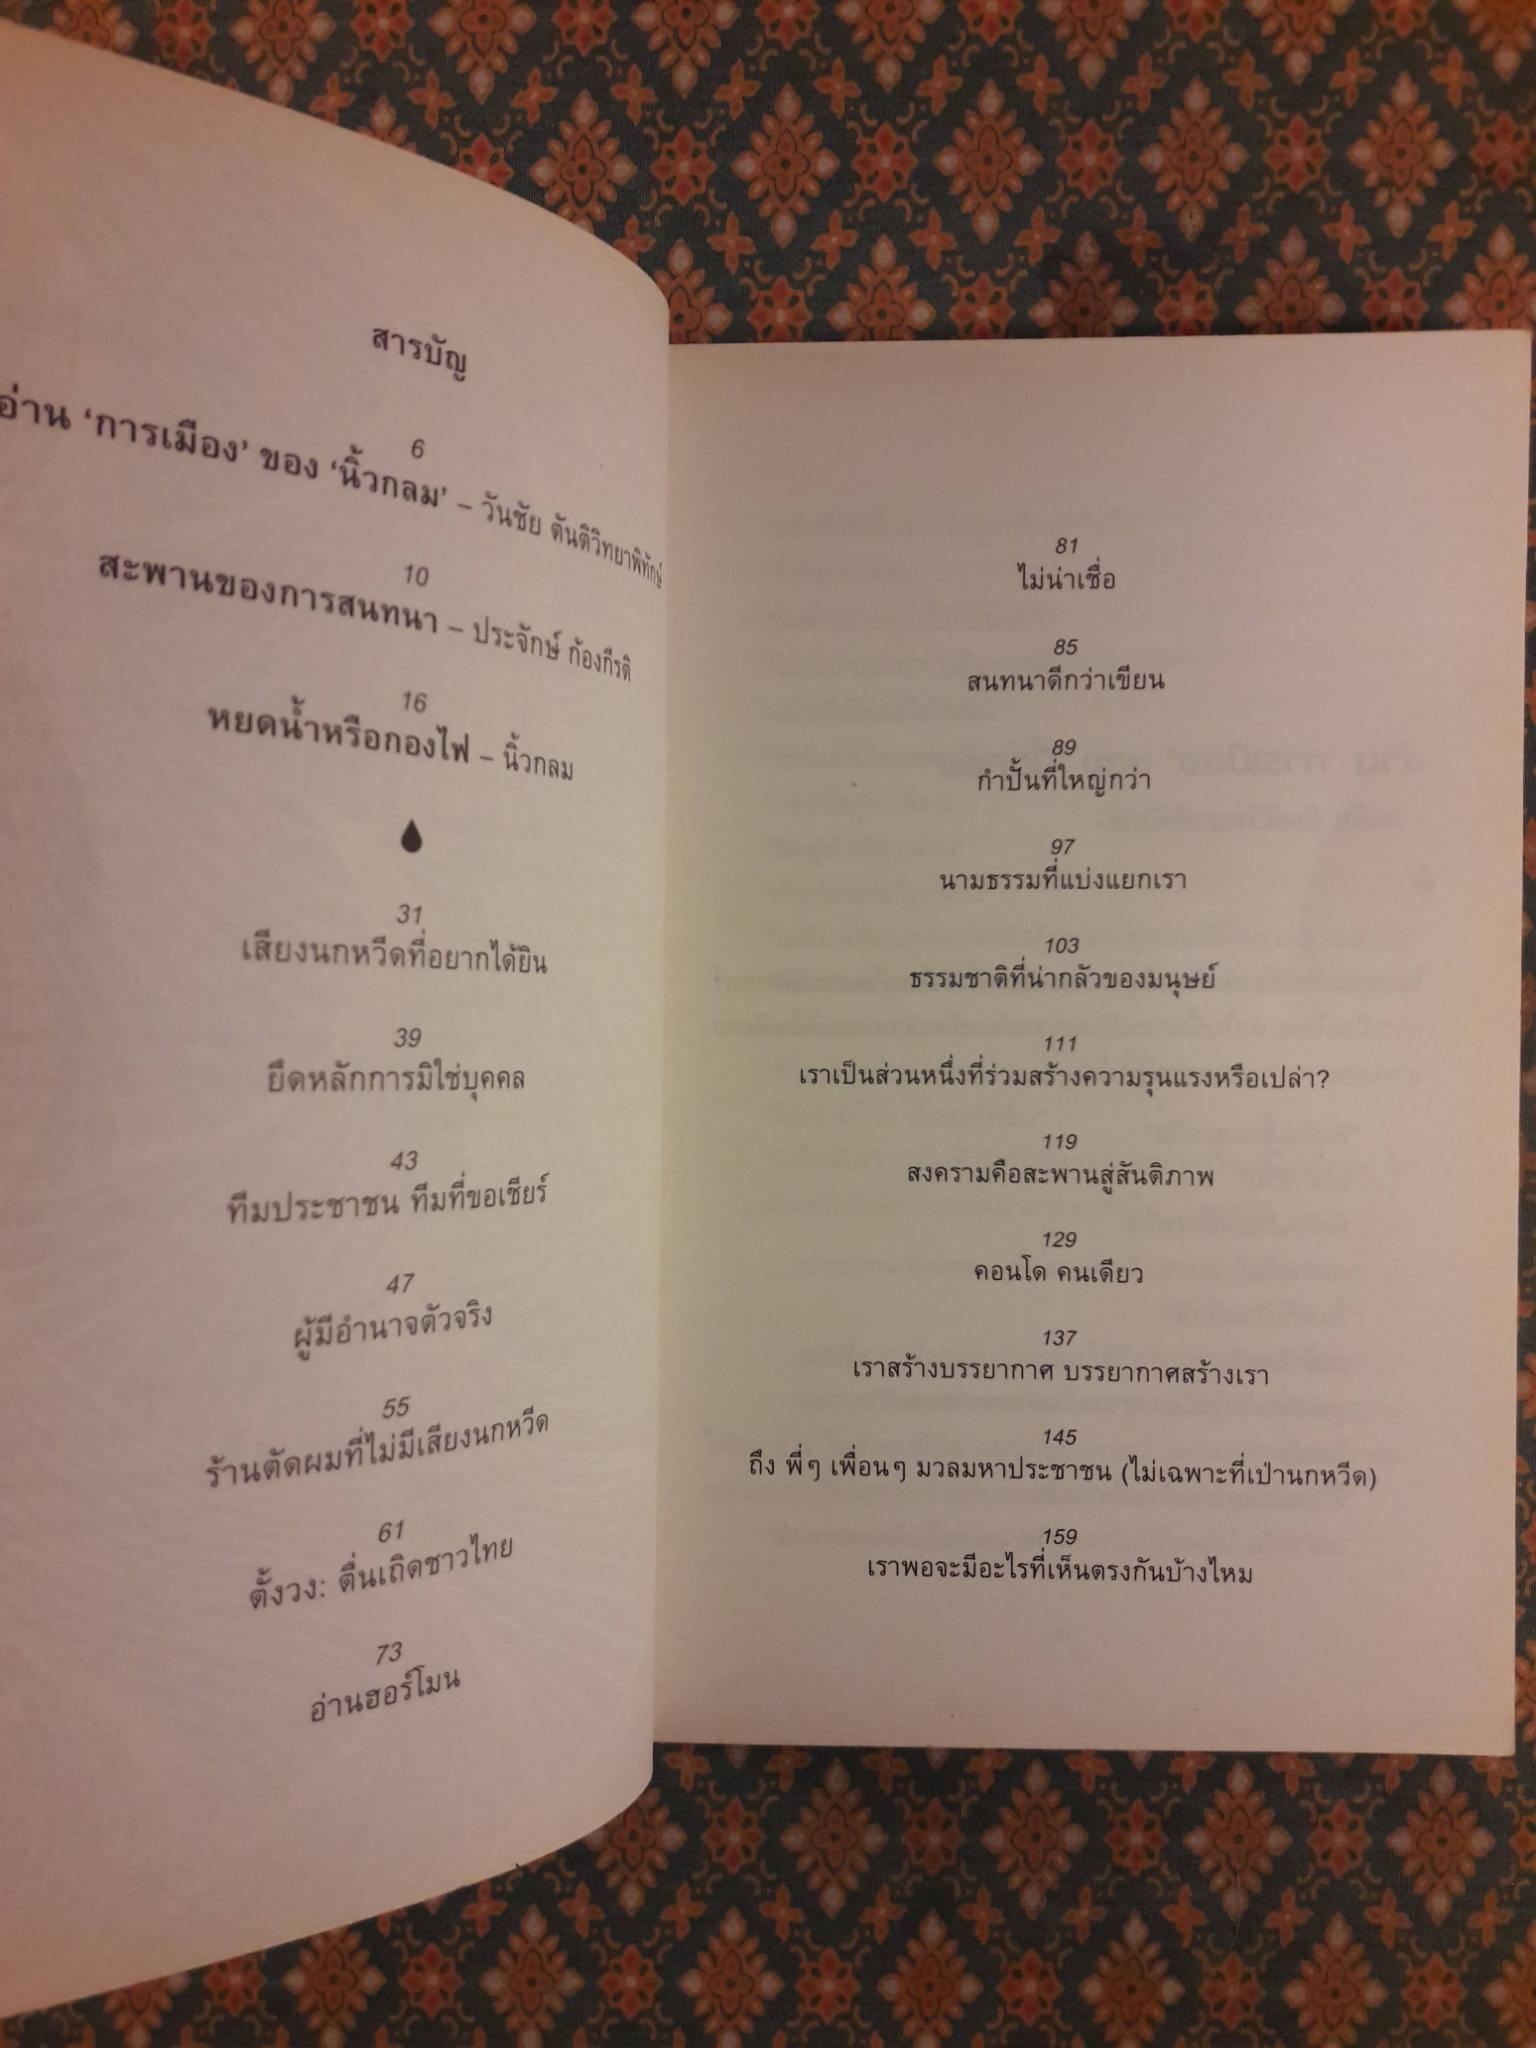 สารบัญ
6
อ่าน ‘การเมือง’ ของ ‘นิ้วกลม’ – วันชัย ตันติวิทยาพิทักษ์
10
สะพานของการสนทนา – ประจักษ์ ก้องกีรติ
16
หยดน้ำหรือกองไฟ – นิ้วกลม
31
เสียงนกหวีดที่อยากได้ยิน
39
ยึดหลักการมิใช่บุคคล
43
ทีมประชาชน ทีมที่ขอเชียร์
47
ผู้มีอำนาจตัวจริง
55
ร้านตัดผมที่ไม่มีเสียงนกหวีด
61
ตั้งวง: ตื่นเถิดชาวไทย
73
อ่านฮอร์โมน
81
ไม่น่าเชื่อ
85
สนทนาดีกว่าเขียน
89
กำปั้นที่ใหญ่กว่า
97
นามธรรมที่แบ่งแยกเรา
103
ธรรมชาติที่น่ากลัวของมนุษย์
111
เราเป็นส่วนหนึ่งที่ร่วมสร้างความรุนแรงหรือเปล่า?
119
สงครามคือสะพานสู่สันติภาพ
129
คอนโด คนเดียว
137
เราสร้างบรรยากาศ บรรยากาศสร้างเรา
145
ถึง พี่ๆ เพื่อนๆ มวลมหาประชาชน (ไม่เฉพาะที่เป่านกหวีด)
159
เราพอจะมีอะไรที่เห็นตรงกันบ้างไหม